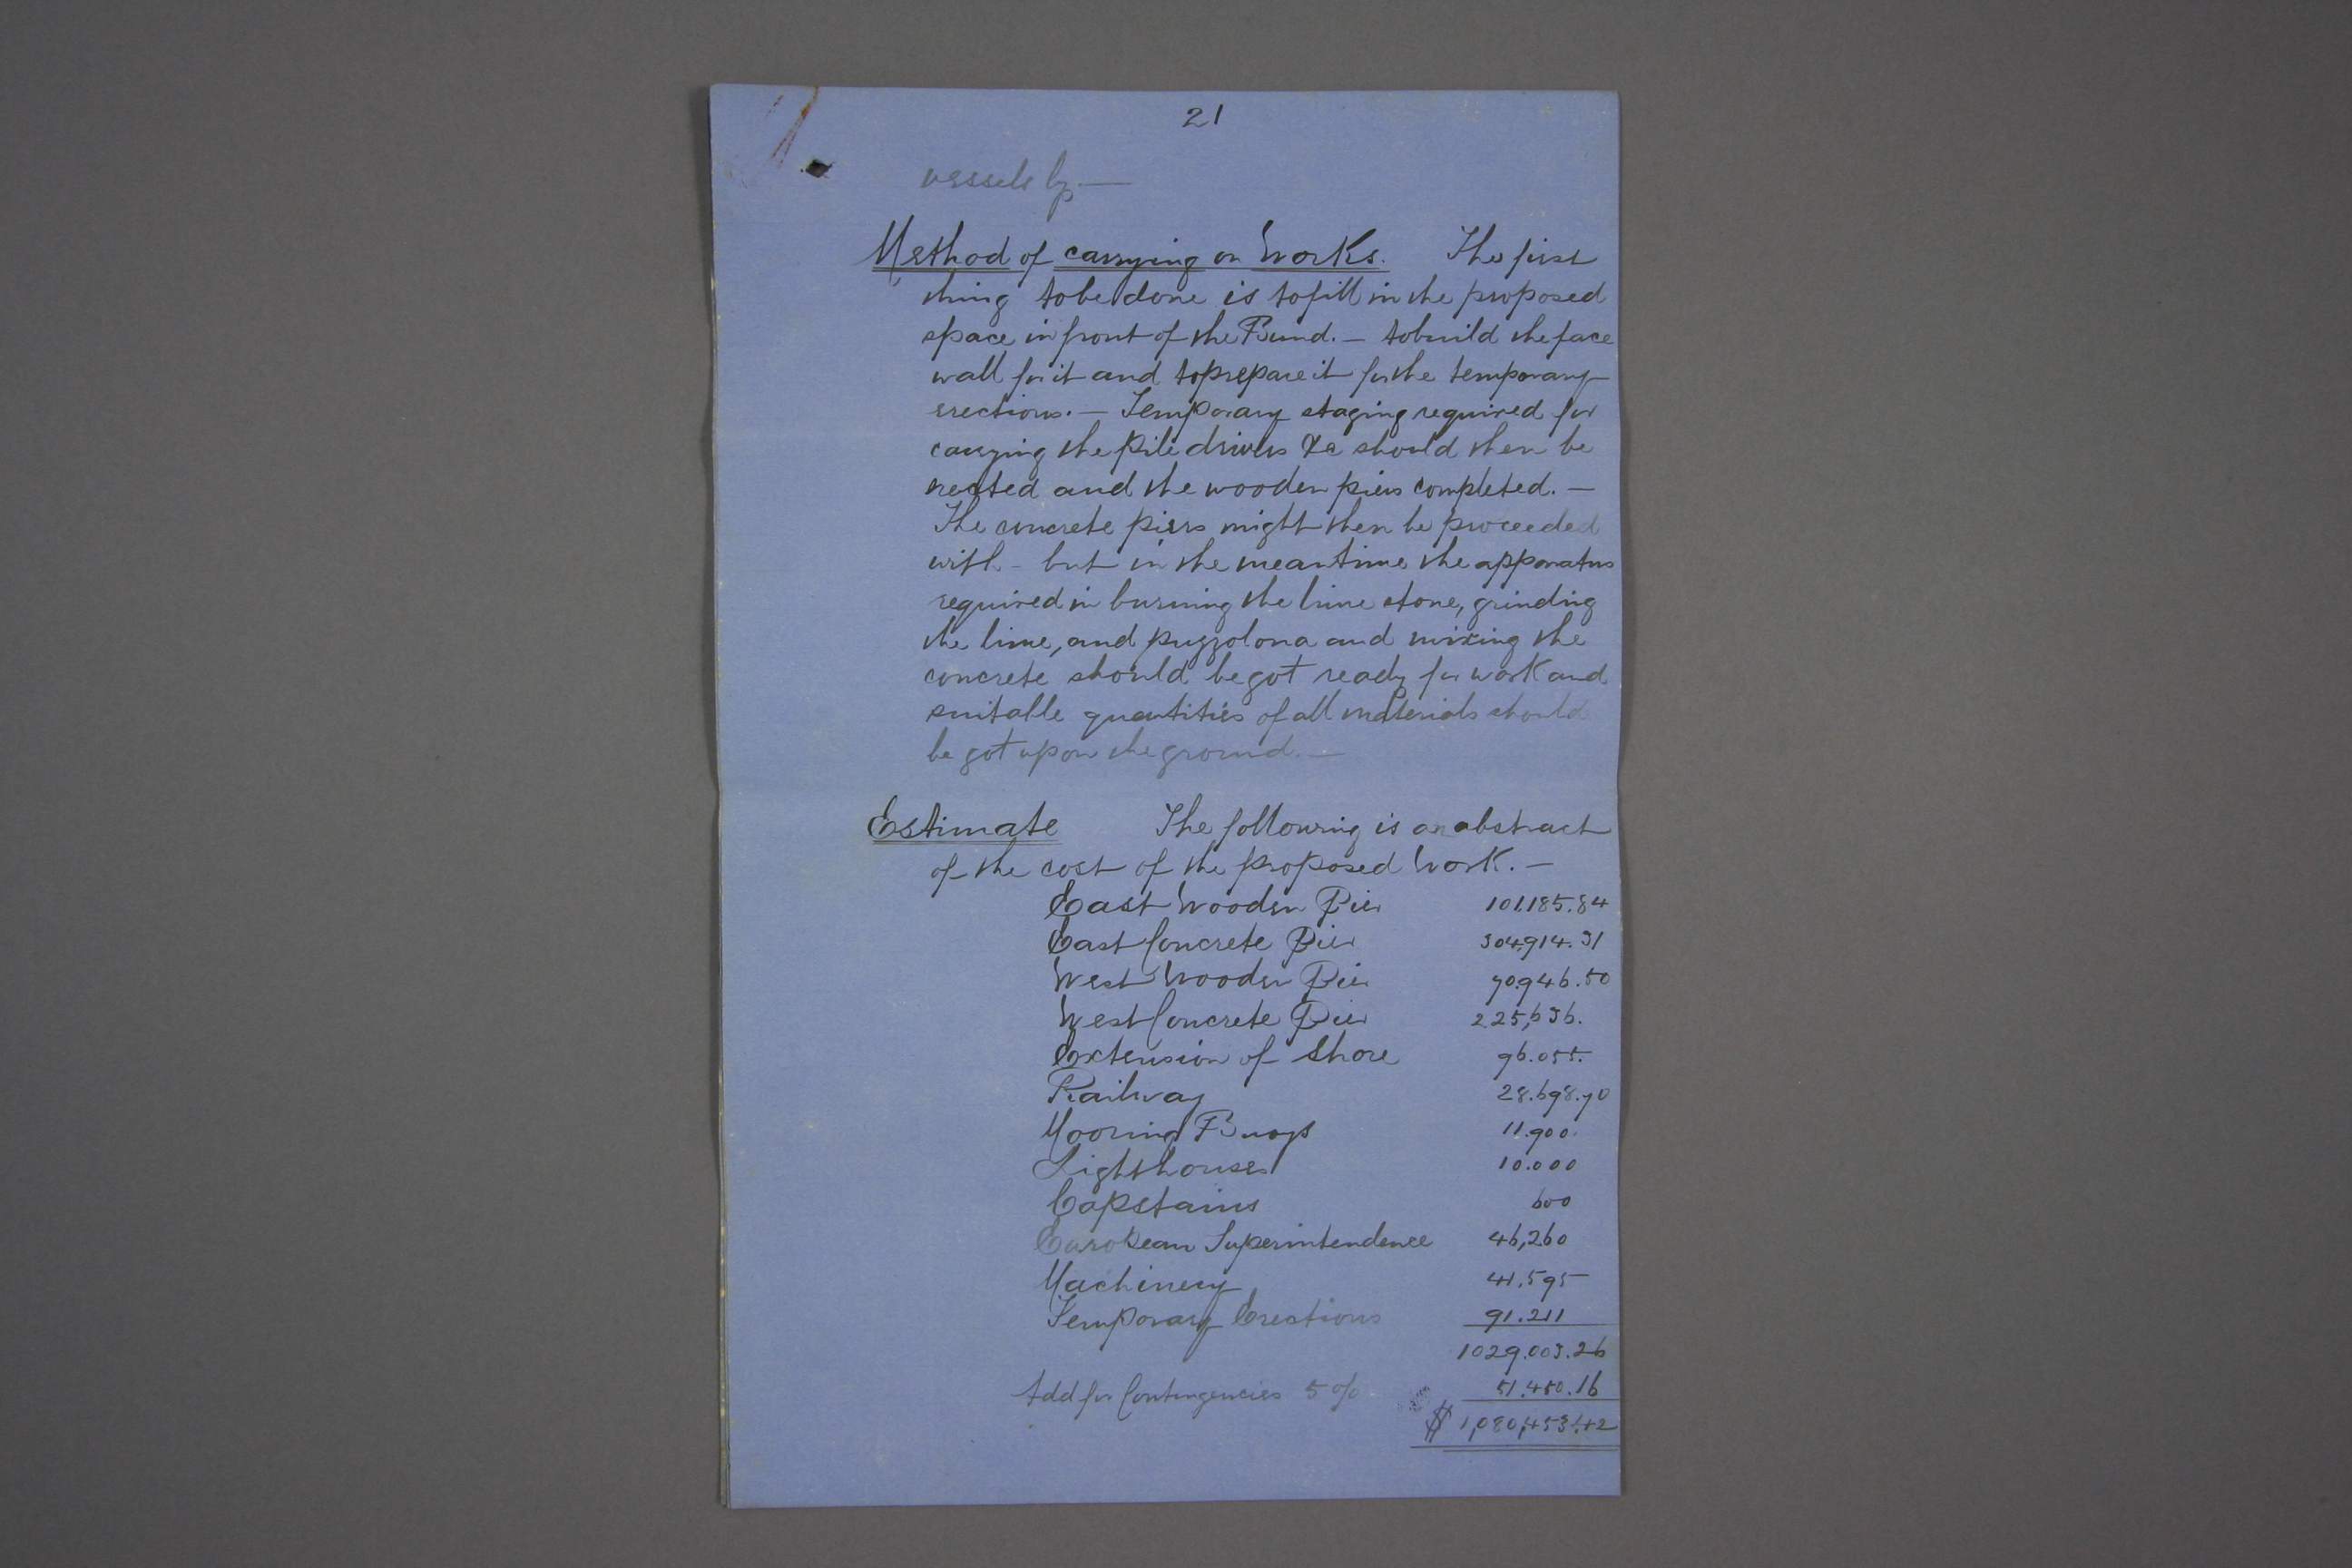 21
vessels by.—
Method of carrying on Works. The first
thing to be done is to fill in the proposed
space in front of the Bund.— to build the face
wall for it and to prepare it for the temporary
erections.— Temporary staging required for
carrying the pile drivers &c should then be
erected and the wooden piers completed.—
The concrete piers might then be proceeded
with - but in the meantime the apparatus
required in burning the lime stone, grinding
the lime, and puzzolona and mixing the
concrete should be got ready for work and
suitable quantities of all materials should
be got upon the ground.—
Estimate The following is an abstract
of the cost of the proposed Work.—
East Wooden Pier 101.185.84
East Concrete Pier 304.914.31
West Wooden Pier 70.946.50
West Concrete Pier 225,636.
Extension of Shore 96.055.
Railway 28.698.70
Mooring Buoys 11.900.
Lighthouses 10.000
Capstains 600
European Superintendence 46,260
Machinery 41.595
Temporary Erections 91.211
1029.003.26
Add for Contingencies 5% 51.450.16
$ 1,080,453.42